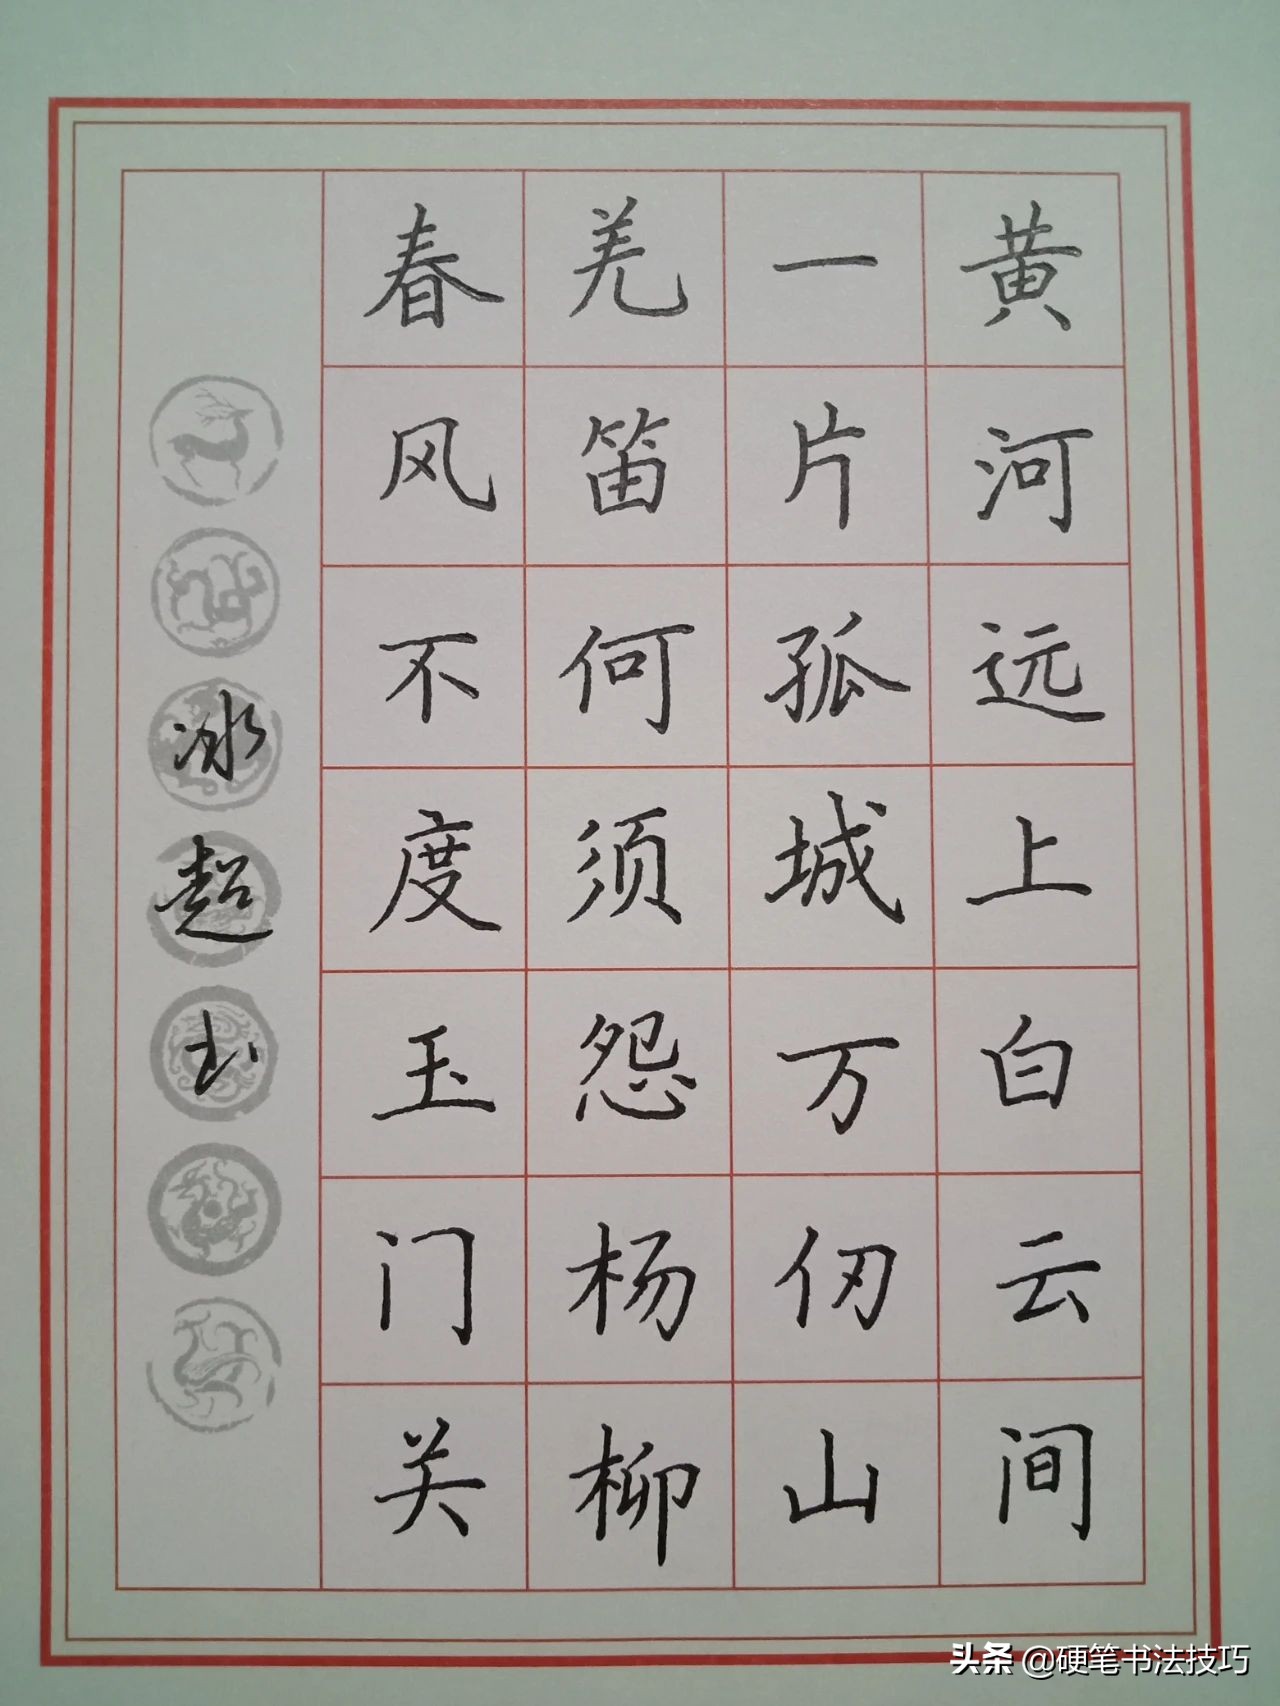 黄河远上白云间
一片孤城万仞山
羌笛何须怨杨柳
春风不度玉门关
冰超书
头条 @硬笔书法技巧